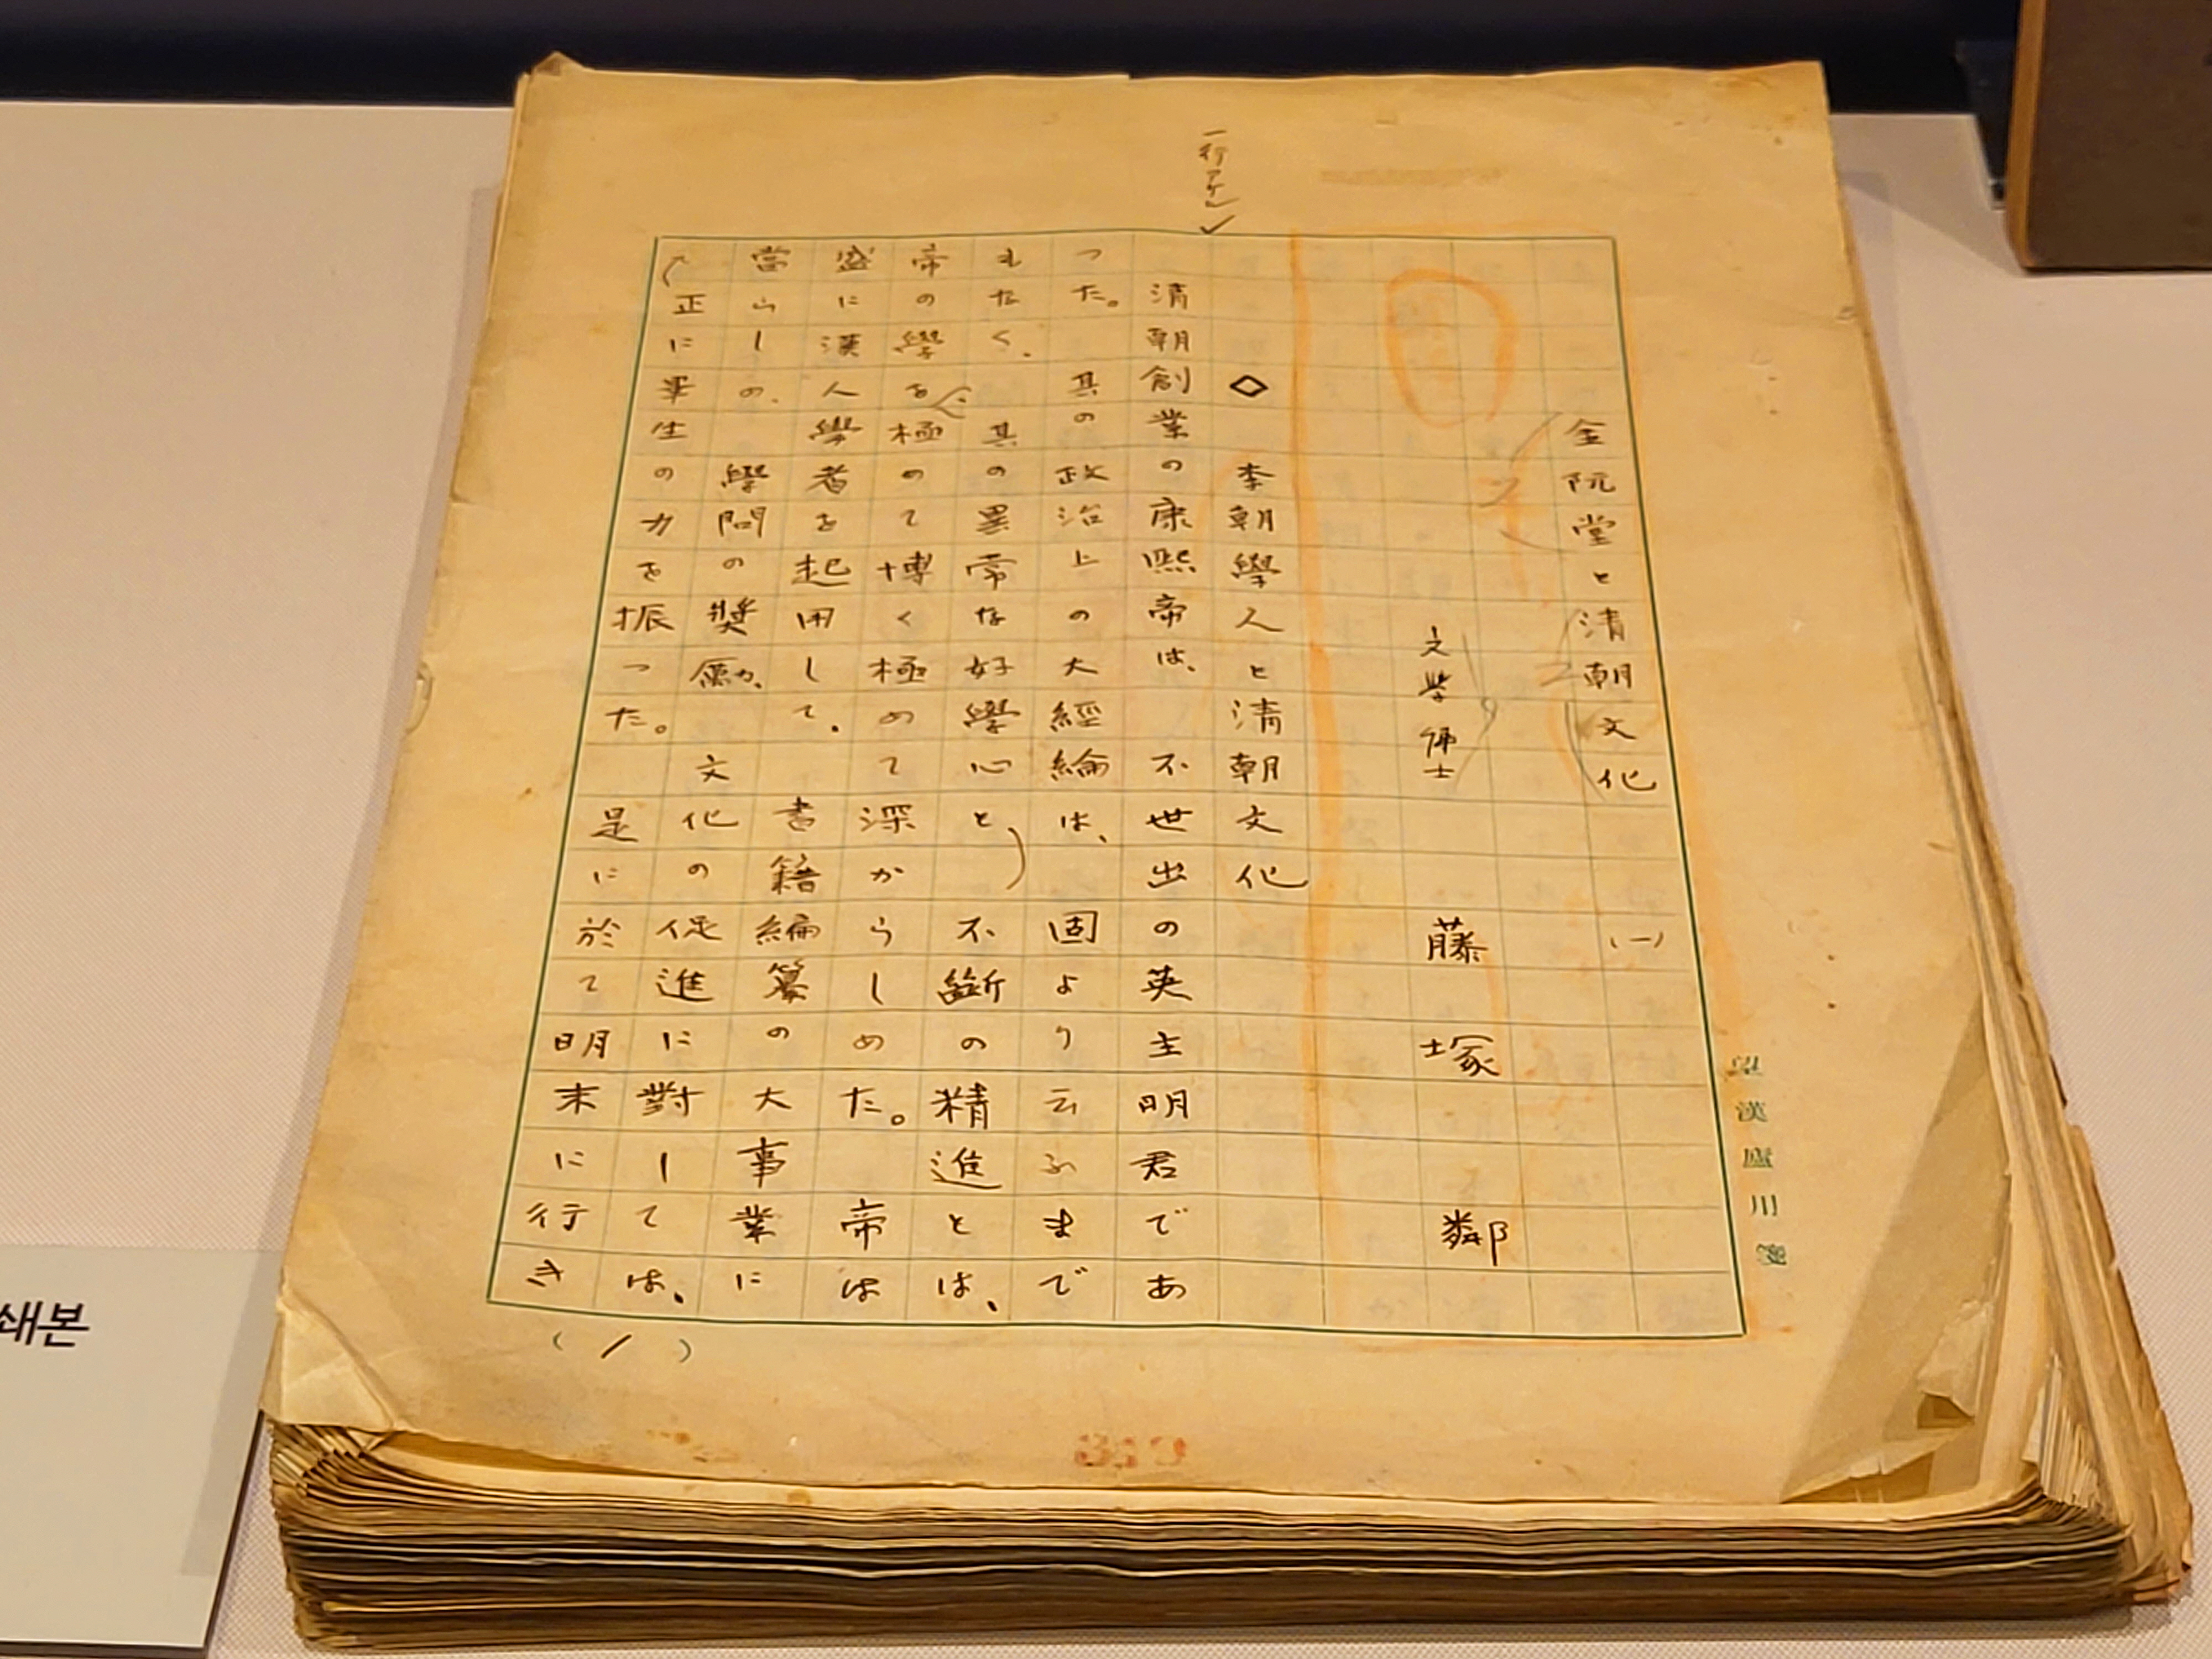 一行アケル
金阮堂と清朝文化 (一)
文學博士 藤塚鄰
◇ 李朝學人と清朝文化
清朝創業の康熙帝は、不世出の英主明君であ
つた。其の政治上の大經綸は、固より云ふまで
もなく、其の異常な好學心と不斷の精進とは、
帝の學を極めて博く極めて深からしめた。帝は
盛に漢人學者を起用して、書籍編纂の大事業に
當らしめ、學問の奬勵、文化の促進に對しては、
正に畢生の力を振つた。是に於て明末に行き
(1)
望漢廬用箋
쇄본